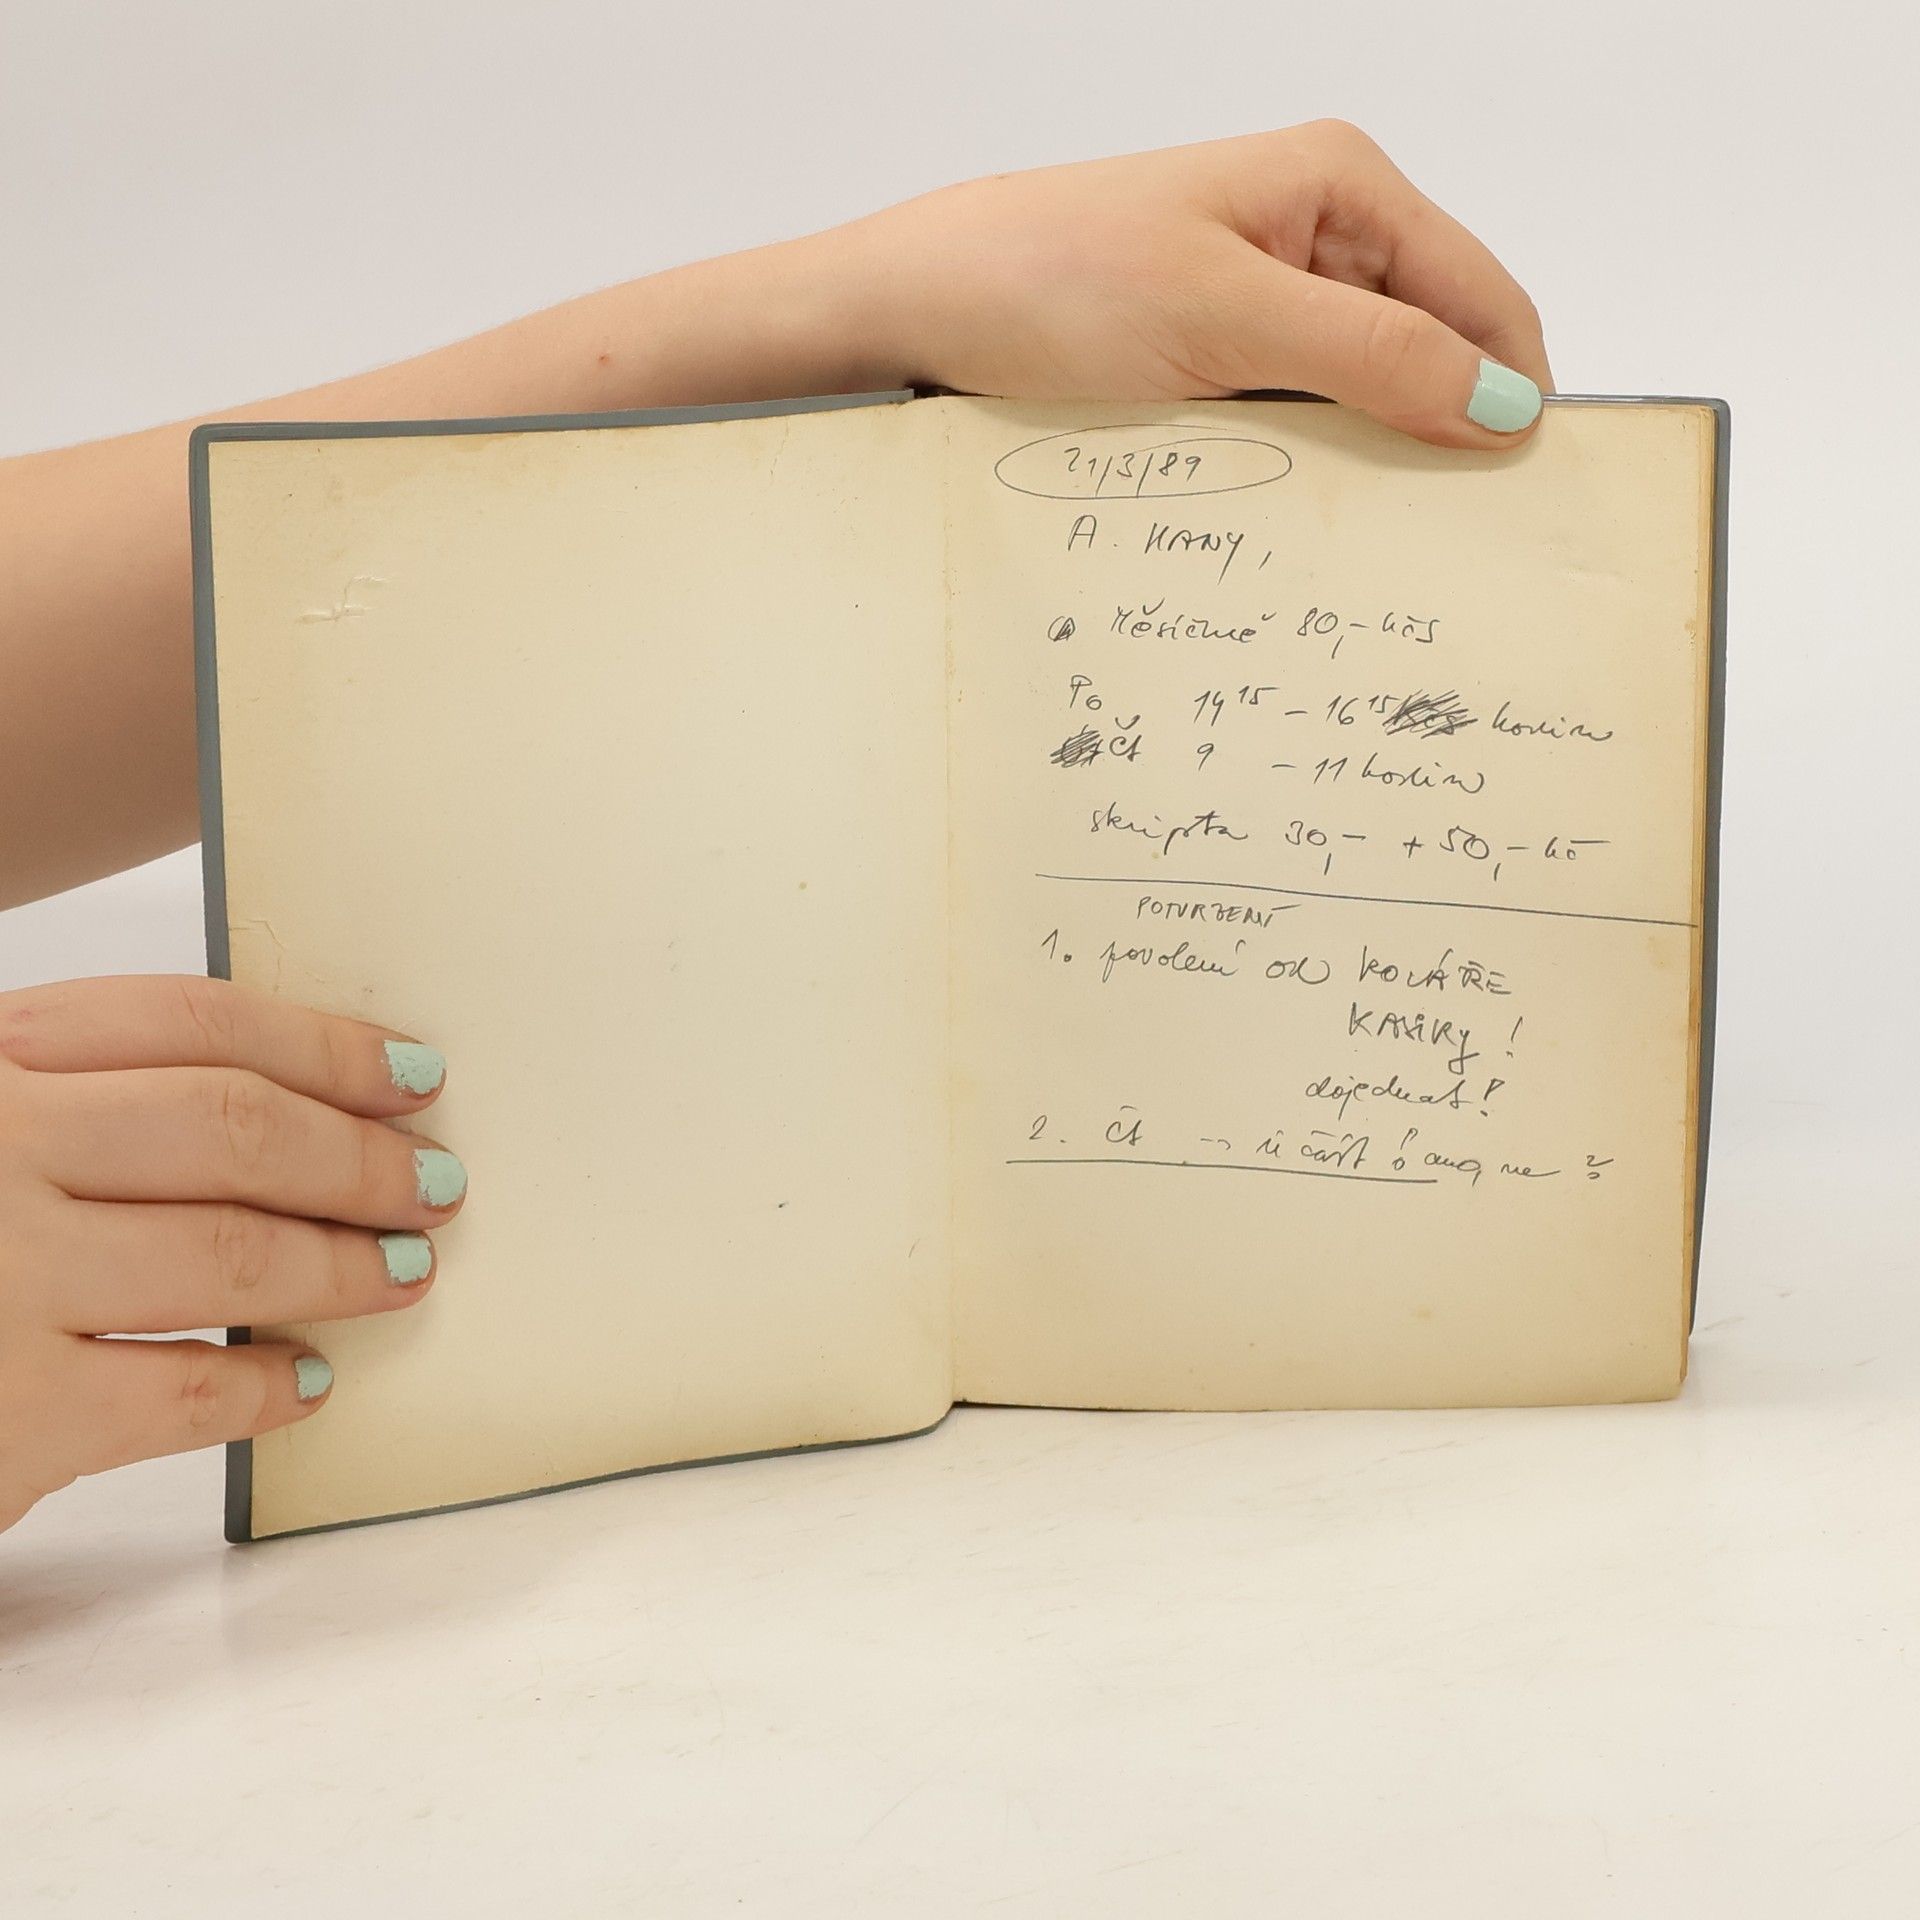 21/3/89
A. HANY,
Měsíčně 80,- kčs
Po 14 15 - 16 15 hodin
Čt 9 - 11 hodin
skripta 30,- + 50,- kč
POTVRZENÍ
1. povolení od KOVÁŘE
!
dojednat!
2. čt → účást ! ano, ne ?